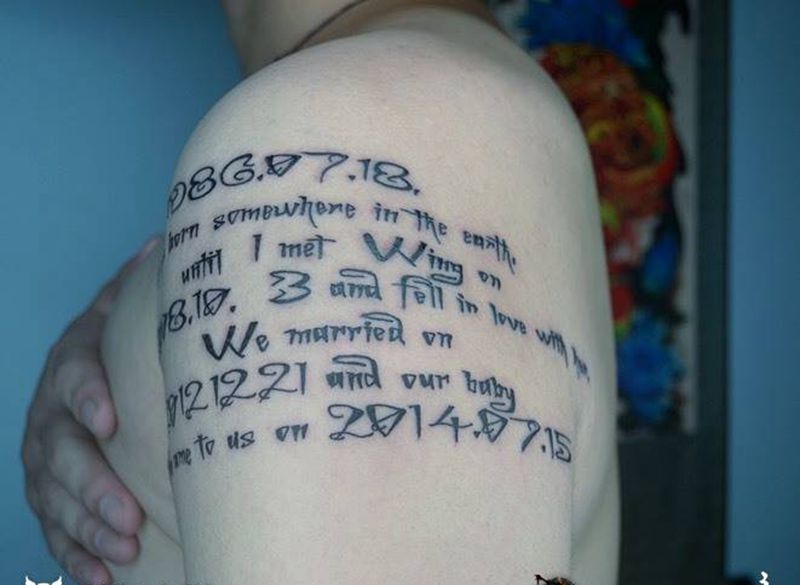 086.07.18.
born somewhere in the earth.
until I met Wing on
08.10. 3 and fell in love with her.
We married on
20121221 and our baby
came to us on 2014.07.15